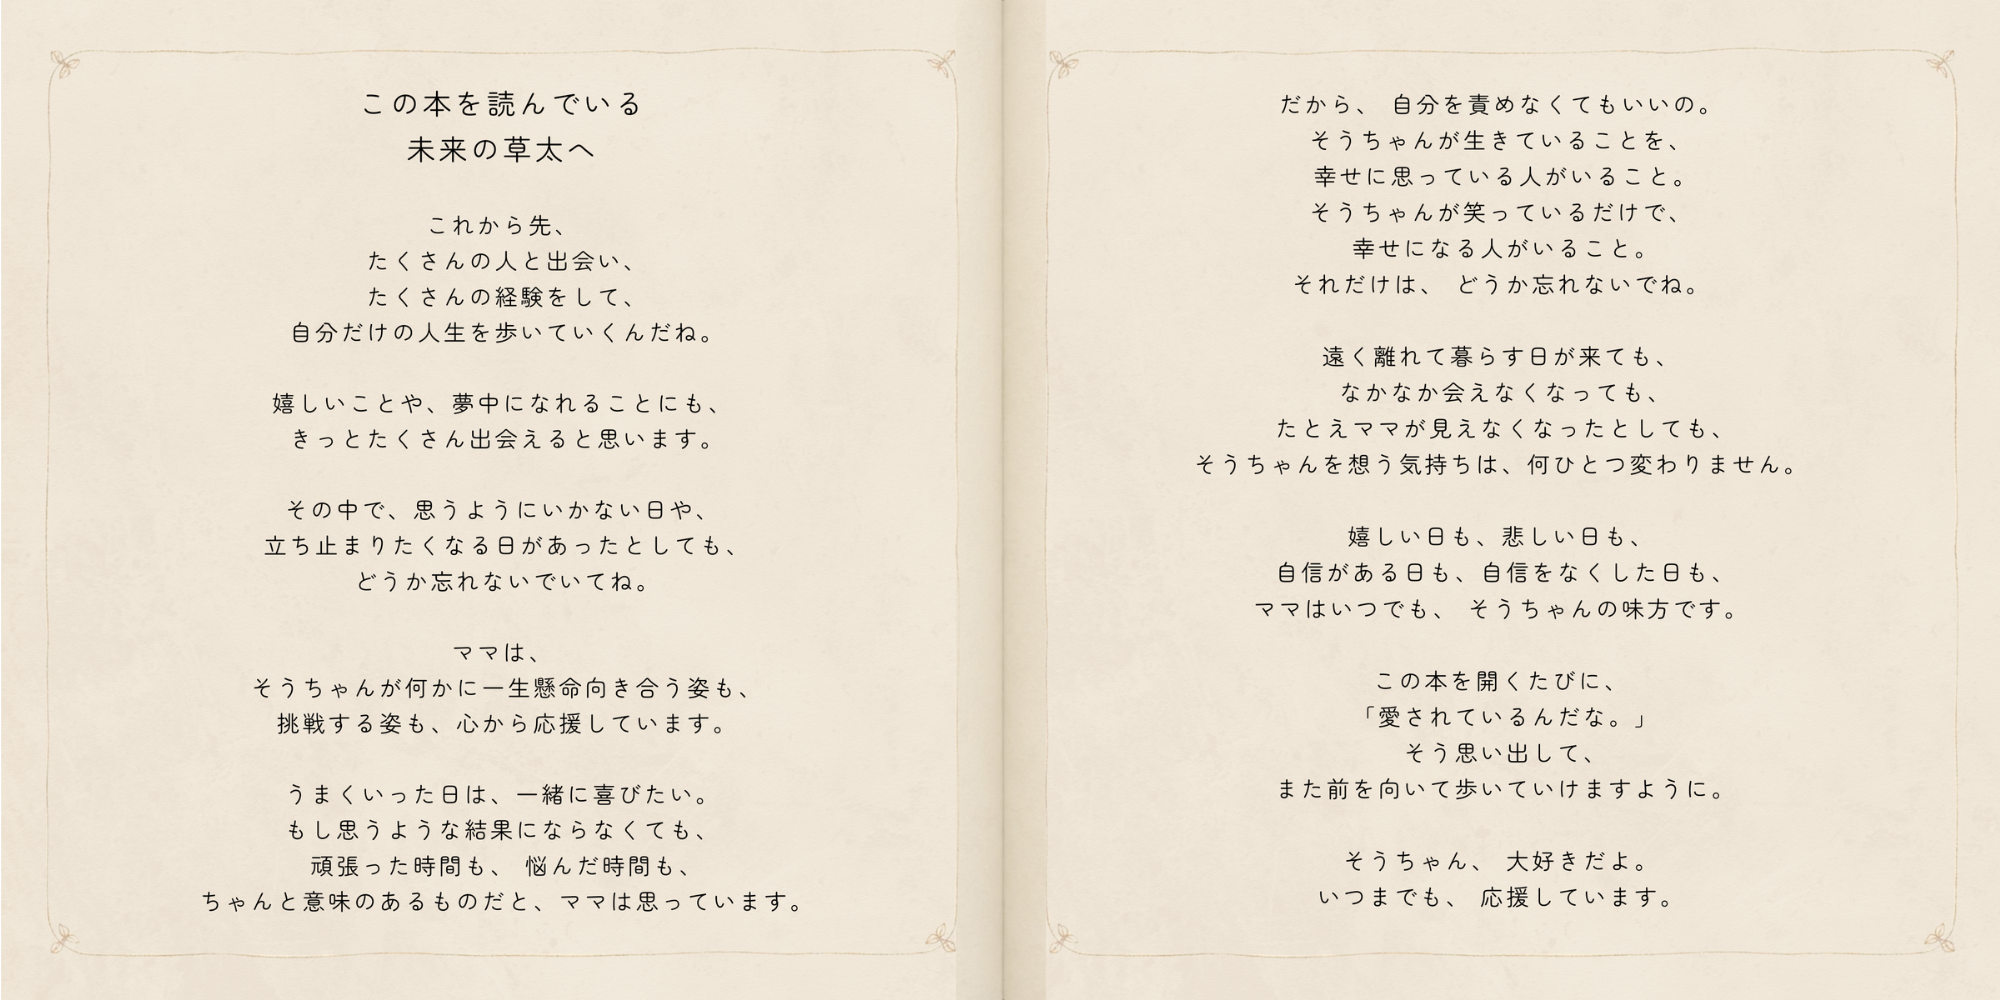 この本を読んでいる
未来の草太へ
これから先、
たくさんの人と出会い、
たくさんの経験をして、
自分だけの人生を歩いていくんだね。
嬉しいことや、夢中になれることにも、
きっとたくさん出会えると思います。
その中で、思うようにいかない日や、
立ち止まりたくなる日があったとしても、
どうか忘れないでいてね。
ママは、
そうちゃんが何かに一生懸命向き合う姿も、
挑戦する姿も、心から応援しています。
うまくいった日は、一緒に喜びたい。
もし思うような結果にならなくても、
頑張った時間も、 悩んだ時間も、
ちゃんと意味のあるものだと、ママは思っています。
だから、 自分を責めなくてもいいの。
そうちゃんが生きていることを、
幸せに思っている人がいること。
そうちゃんが笑っているだけで、
幸せになる人がいること。
それだけは、 どうか忘れないでね。
遠く離れて暮らす日が来ても、
なかなか会えなくなっても、
たとえママが見えなくなったとしても、
そうちゃんを想う気持ちは、何ひとつ変わりません。
嬉しい日も、悲しい日も、
自信がある日も、自信をなくした日も、
ママはいつでも、 そうちゃんの味方です。
この本を開くたびに、
「愛されているんだな。」
そう思い出して、
また前を向いて歩いていけますように。
そうちゃん、 大好きだよ。
いつまでも、 応援しています。